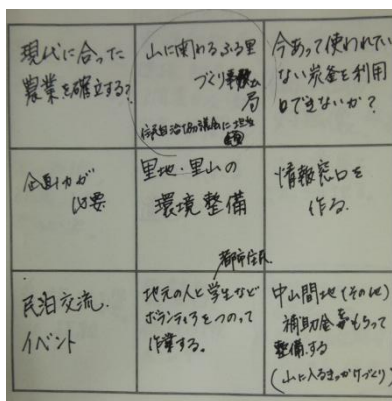 現代に合った
農業を確立する?
山に関わるふる里
づくり事務
局
住民自治協議会に
今あって使われてい
ない炭釜を利用
できないか?
企画力が
必要
里地・里山の
環境整備
情報窓口を
作る.
民泊交流.
イベント
都市住民
地元の人と学生など
ボランティアをつのって
作業する。
中山間地(その他)
補助金等もらって
整備する
(山に入るきっかけづくり)